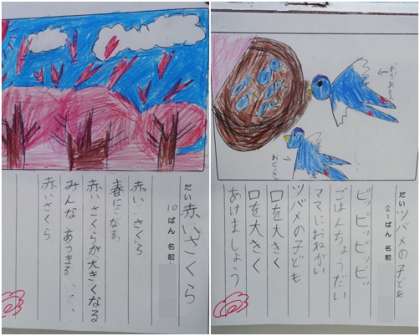 だい 赤いさくら
10ばん 名前
赤い さくら
春になる
赤いさくらが大きくなる
みんな あつまる...
赤いさくら
だい ツバメの子ども
ばん 名前
ピッピッピッピッ
ごはんちょうだい
ママにおねがい
ツバメの子ども
口を大きく
口を大きく
あけましょう